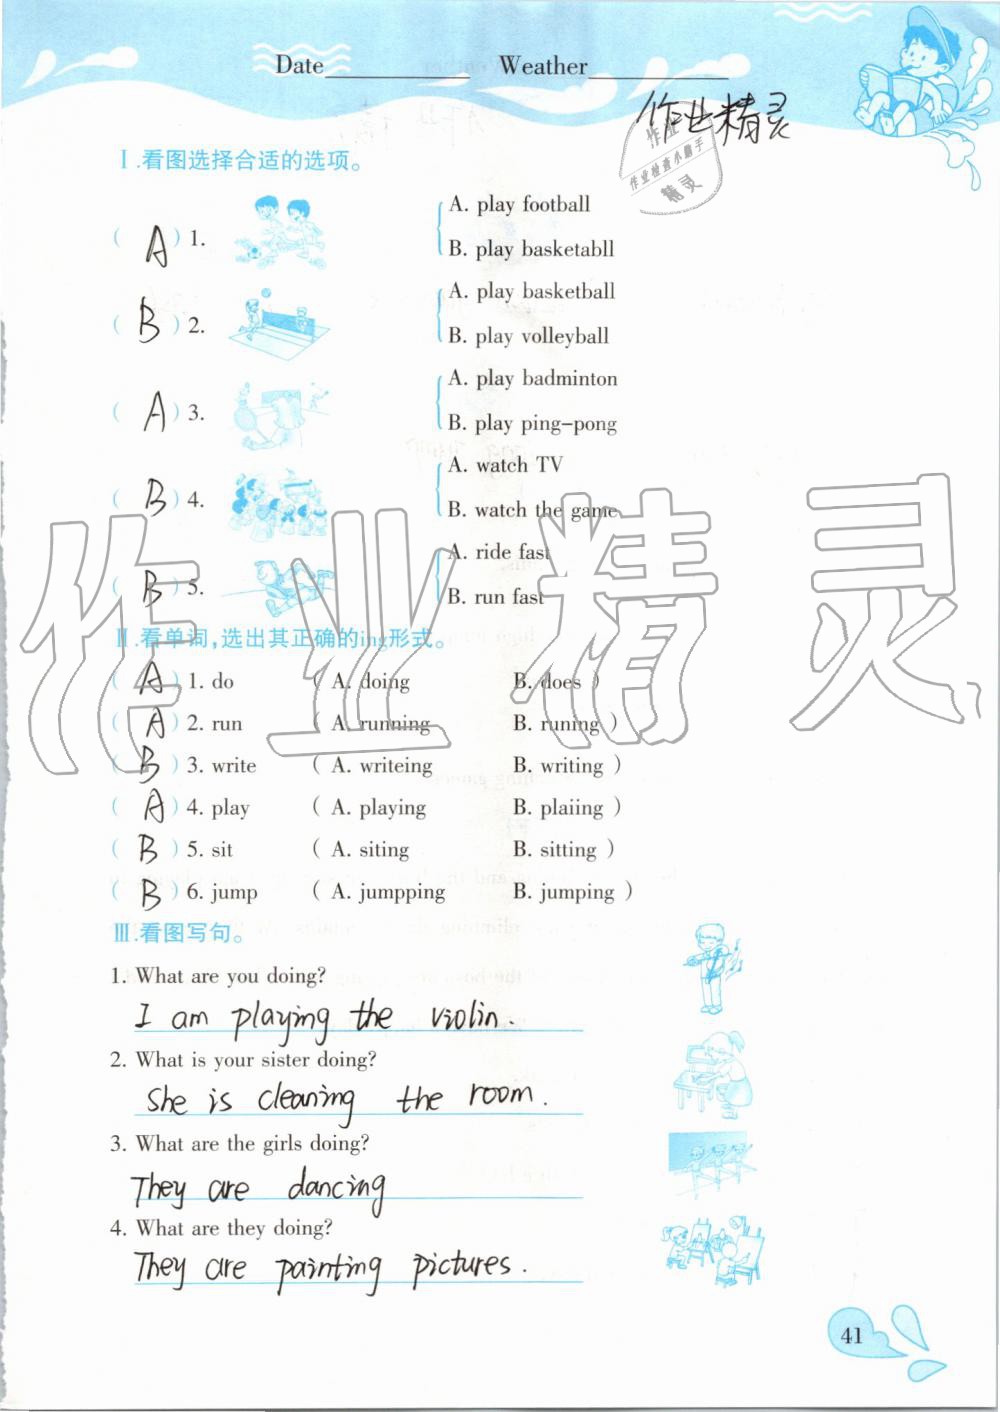 Date__________ Weather__________
作业精灵
作业
作业检查小助手
精灵
Ⅰ.看图选择合适的选项。
( A ) 1. A. play football
B. play basketabll
( B ) 2. A. play basketball
B. play volleyball
( A ) 3. A. play badminton
B. play ping-pong
( B ) 4. A. watch TV
B. watch the game
( B ) 5. A. ride fast
B. run fast
作业精灵
Ⅱ.看单词,选出其正确的ing形式。
( A ) 1. do ( A. doing B. does )
( A ) 2. run ( A. running B. runing )
( B ) 3. write ( A. writeing B. writing )
( A ) 4. play ( A. playing B. plaiing )
( B ) 5. sit ( A. siting B. sitting )
( B ) 6. jump ( A. jumpping B. jumping )
Ⅲ.看图写句。
1. What are you doing?
I am playing the violin.
2. What is your sister doing?
She is cleaning the room.
3. What are the girls doing?
They are dancing
4. What are they doing?
They are painting pictures.
41